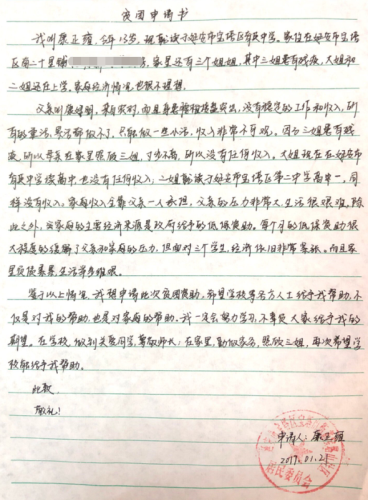 贫困申请书
我叫康正雄,今年13岁,现就读于延安市宝塔区育英中学。家住在延安市宝塔
区 二十里铺 号,家里还有三个姐姐,其中三姐患有残疾,大姐和
二姐还在上学,家庭经济情况也很不理想。
父亲叫康 ,是农村,而且身患腰椎间盘突出,没有稳定的工作和收入,所
有的重活、累活都做不了,只能做一些小活,收入非常不可观。因为三姐患有残
疾,所以母亲在家里照顾三姐,寸步不离,所以没有任何收入。大姐现在在延安市
育英中学读高中也没有任何收入;二姐就读于延安市宝塔区第二中学高中一,同
样没有收入。家庭收入全靠父亲一人承担,父亲的压力非常大,生活很艰难,除
此之外,我家庭的主要经济来源是政府给予的低保资助。每个月的低保资助很
大程度的缓解了父亲和家庭的压力,但面对三个学生,经济依旧非常紧张。而且家
里负债累累,生活举步难艰。
鉴于以上情况,我想申请此次贫困资助,希望学校等各方人士给予我帮助,不
仅是对我的帮助,也是对家庭的帮助。我一定会努力学习,不辜负大家给予我的
期望。在学校,做到关爱同学,尊敬师长;在家里,勤做家务,照顾三姐,再次希望学
校能给予我帮助。
此致
敬礼!
申请人:康正雄
2019.01.21
居民委员会